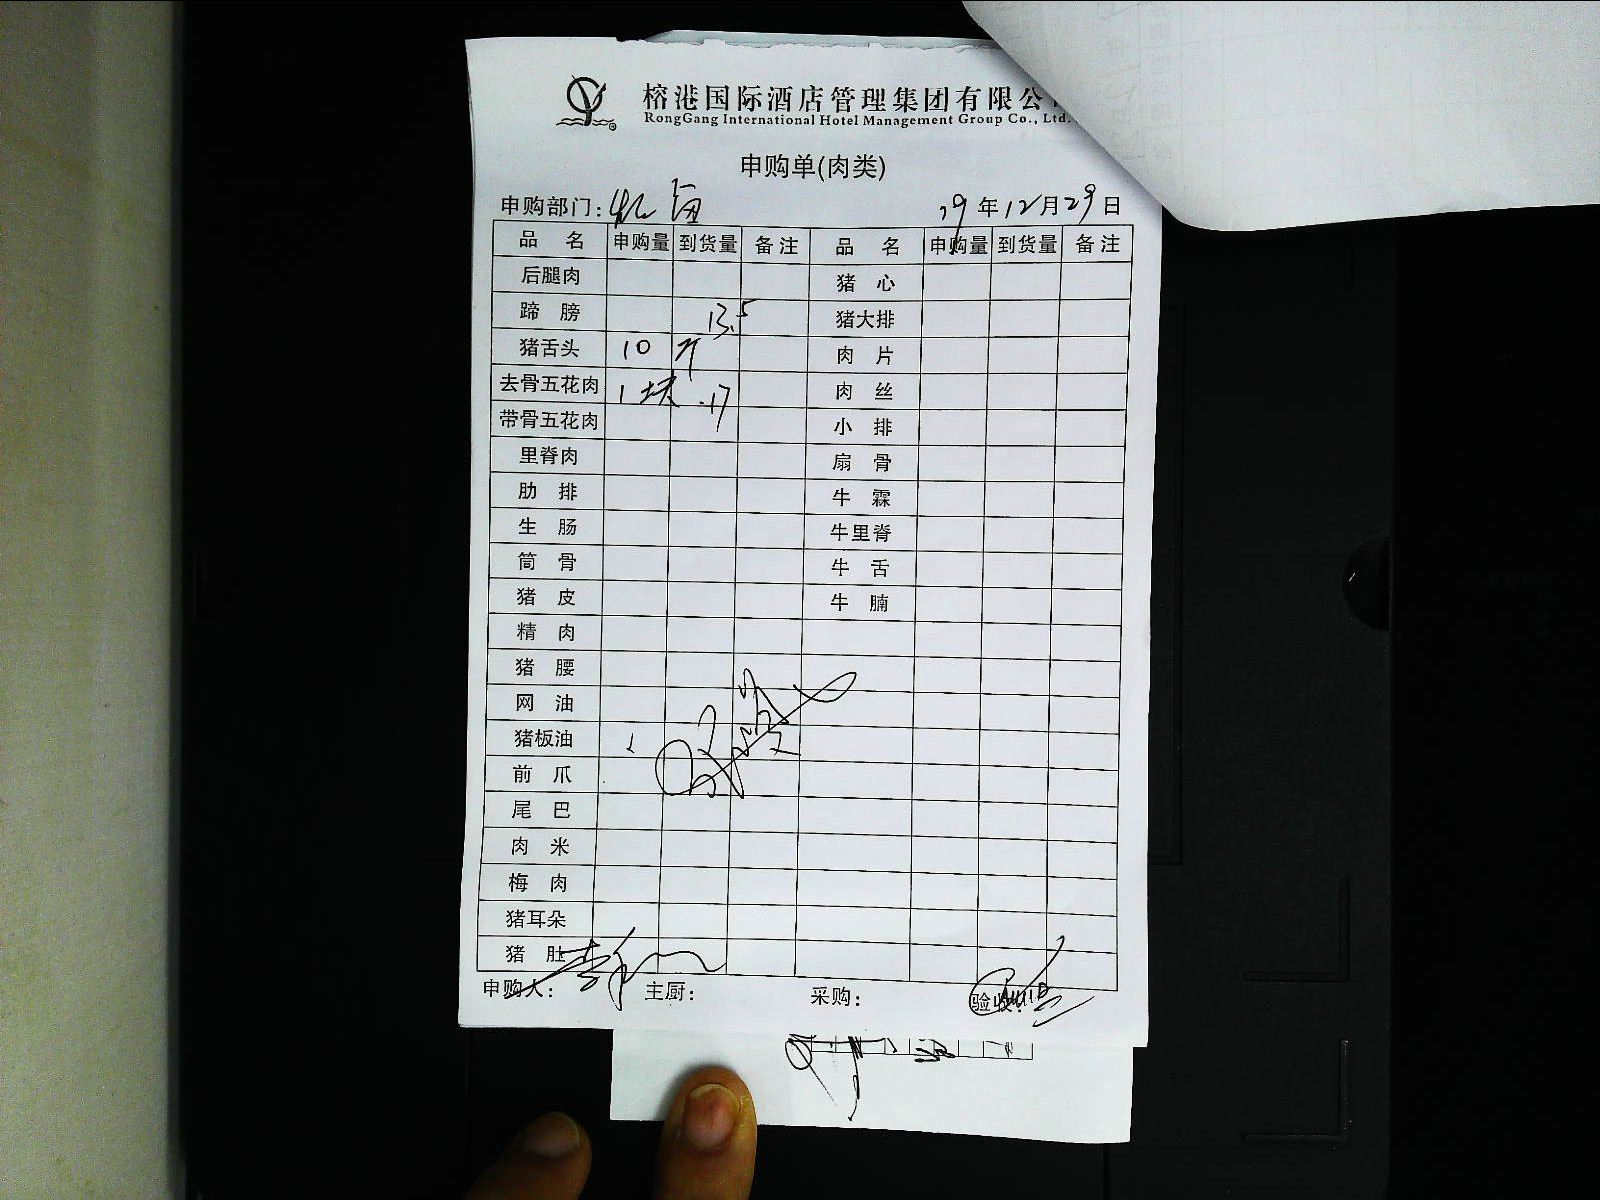 榕港国际酒店管理集团有限公
RongGang International Hotel Management Group Co., Ltd.
申购单(肉类)
申购部门： 19年12月29日
品 名 申购量 到货量 备注 品 名 申购量 到货量 备注
后腿肉 猪 心
蹄 膀 13.5 猪大排
猪舌头 10 斤 肉 片
去骨五花肉 1块 17 肉 丝
带骨五花肉 小 排
里脊肉 扇 骨
肋 排 牛 霖
生 肠 牛里脊
筒 骨 牛 舌
猪 皮 牛 腩
精 肉
猪 腰
网 油
猪板油
前 爪
尾 巴
肉 米
梅 肉
猪耳朵
猪 肚
申购人： 主厨： 采购： 验收：